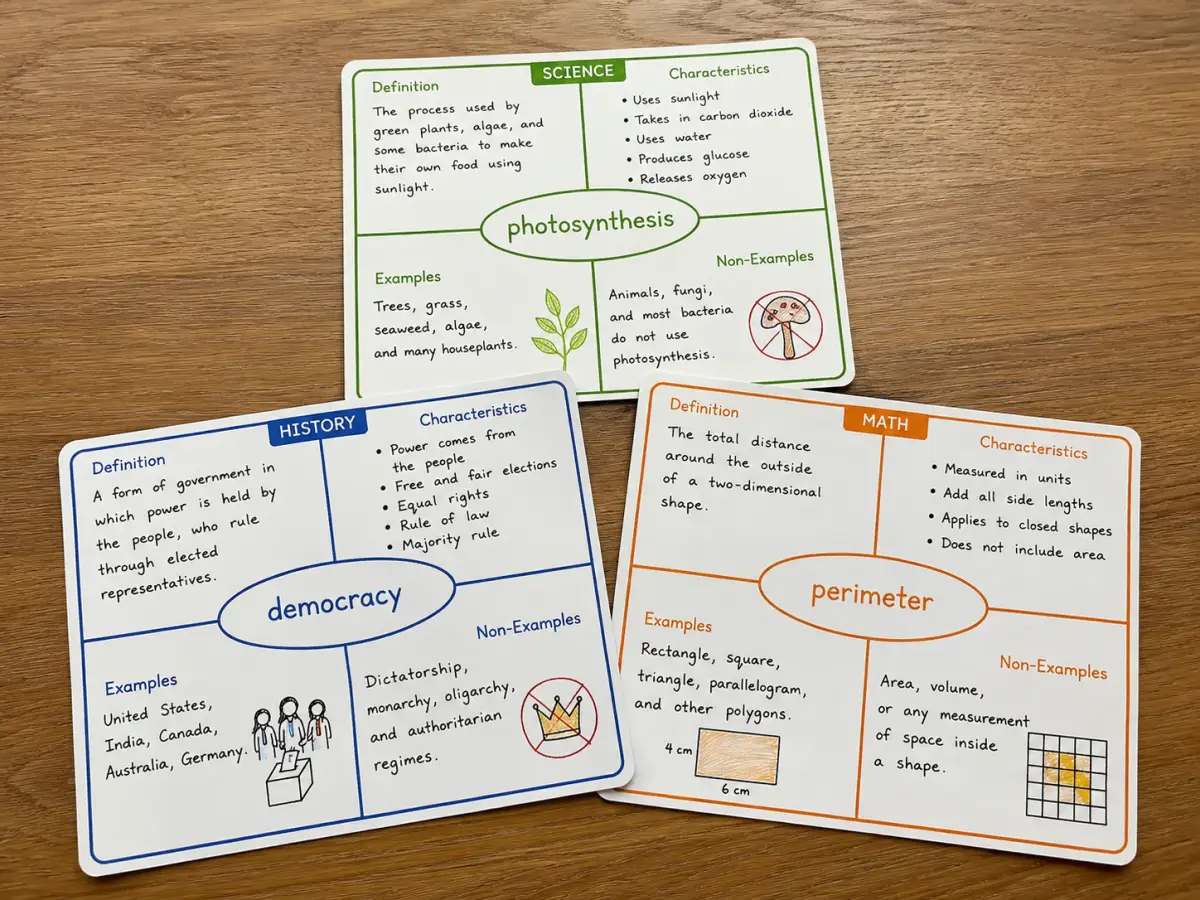 SCIENCE
Definition
The process used by
green plants, algae, and
some bacteria to make
their own food using
sunlight.
Characteristics
• Uses sunlight
• Takes in carbon dioxide
• Uses water
• Produces glucose
• Releases oxygen
photosynthesis
Examples
Trees, grass,
seaweed, algae,
and many houseplants.
Non-Examples
Animals, fungi,
and most bacteria
do not use
photosynthesis.
HISTORY
Definition
A form of government in
which power is held by
the people, who rule
through elected
representatives.
Characteristics
• Power comes from
the people
• Free and fair elections
• Equal rights
• Rule of law
• Majority rule
democracy
Examples
United States,
India, Canada,
Australia, Germany.
Non-Examples
Dictatorship,
monarchy, oligarchy,
and authoritarian
regimes.
MATH
Definition
The total distance
around the outside
of a two-dimensional
shape.
Characteristics
• Measured in units
• Add all side lengths
• Applies to closed shapes
• Does not include area
perimeter
Examples
Rectangle, square,
triangle, parallelogram,
and other polygons.
4 cm
6 cm
Non-Examples
Area, volume,
or any measurement
of space inside
a shape.